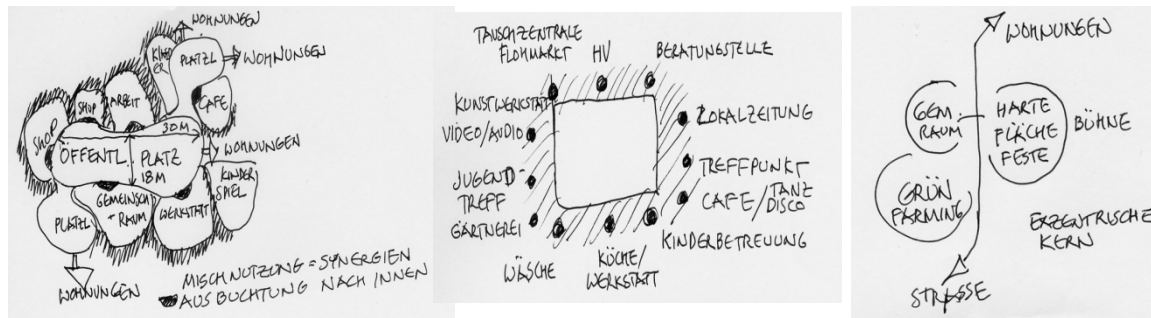 WOHNUNGEN
KINDER
PLATZL
WOHNUNGEN
SHOP
SHOP
ARBEIT
CAFE
30M
ÖFFENTL
PLATZ
18M
WOHNUNGEN
KINDER
SPIEL
PLATZL
GEMEINSCH
RAUM
WERKSTATT
WOHNUNGEN
MISCHNUTZUNG = SYNERGIEN
AUSBUCHTUNG NACH INNEN
TAUSCHZENTRALE
FLOHMARKT
HV
BERATUNGSTELLE
KUNSTWERKSTAT
VIDEO/AUDIO
LOKALZEITUNG
JUGEND-
TREFF
TREFFPUNKT
CAFE/TANZ
DISCO
GÄRTNEREI
KINDERBETREUUNG
WÄSCHE
KÜCHE/
WERKSTATT
WOHNUNGEN
GEM
RAUM
HARTE
FLÄCHE
FESTE
BÜHNE
GRÜN
FARMING
EXZENTRISCHE
KERN
STRASSE